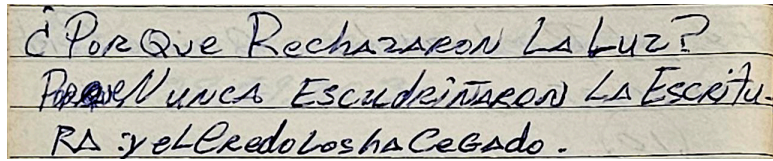 ¿PorQue Rechazaron La Luz?
Porque Nunca Escudriñaron La Escritu-
ra : y el Credo los ha Cegado.